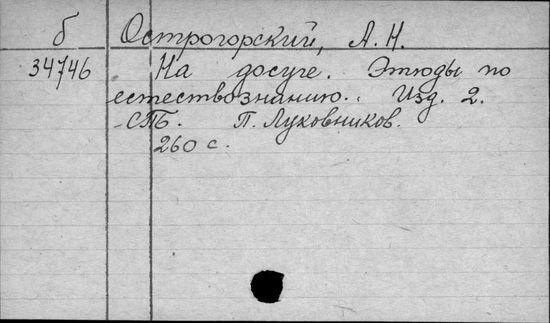 б Острогорский, А. Н.
34746 На досуге. Этюды по
естествознанию. Изд. 2.
СПБ. П. Луковников.
260 с.